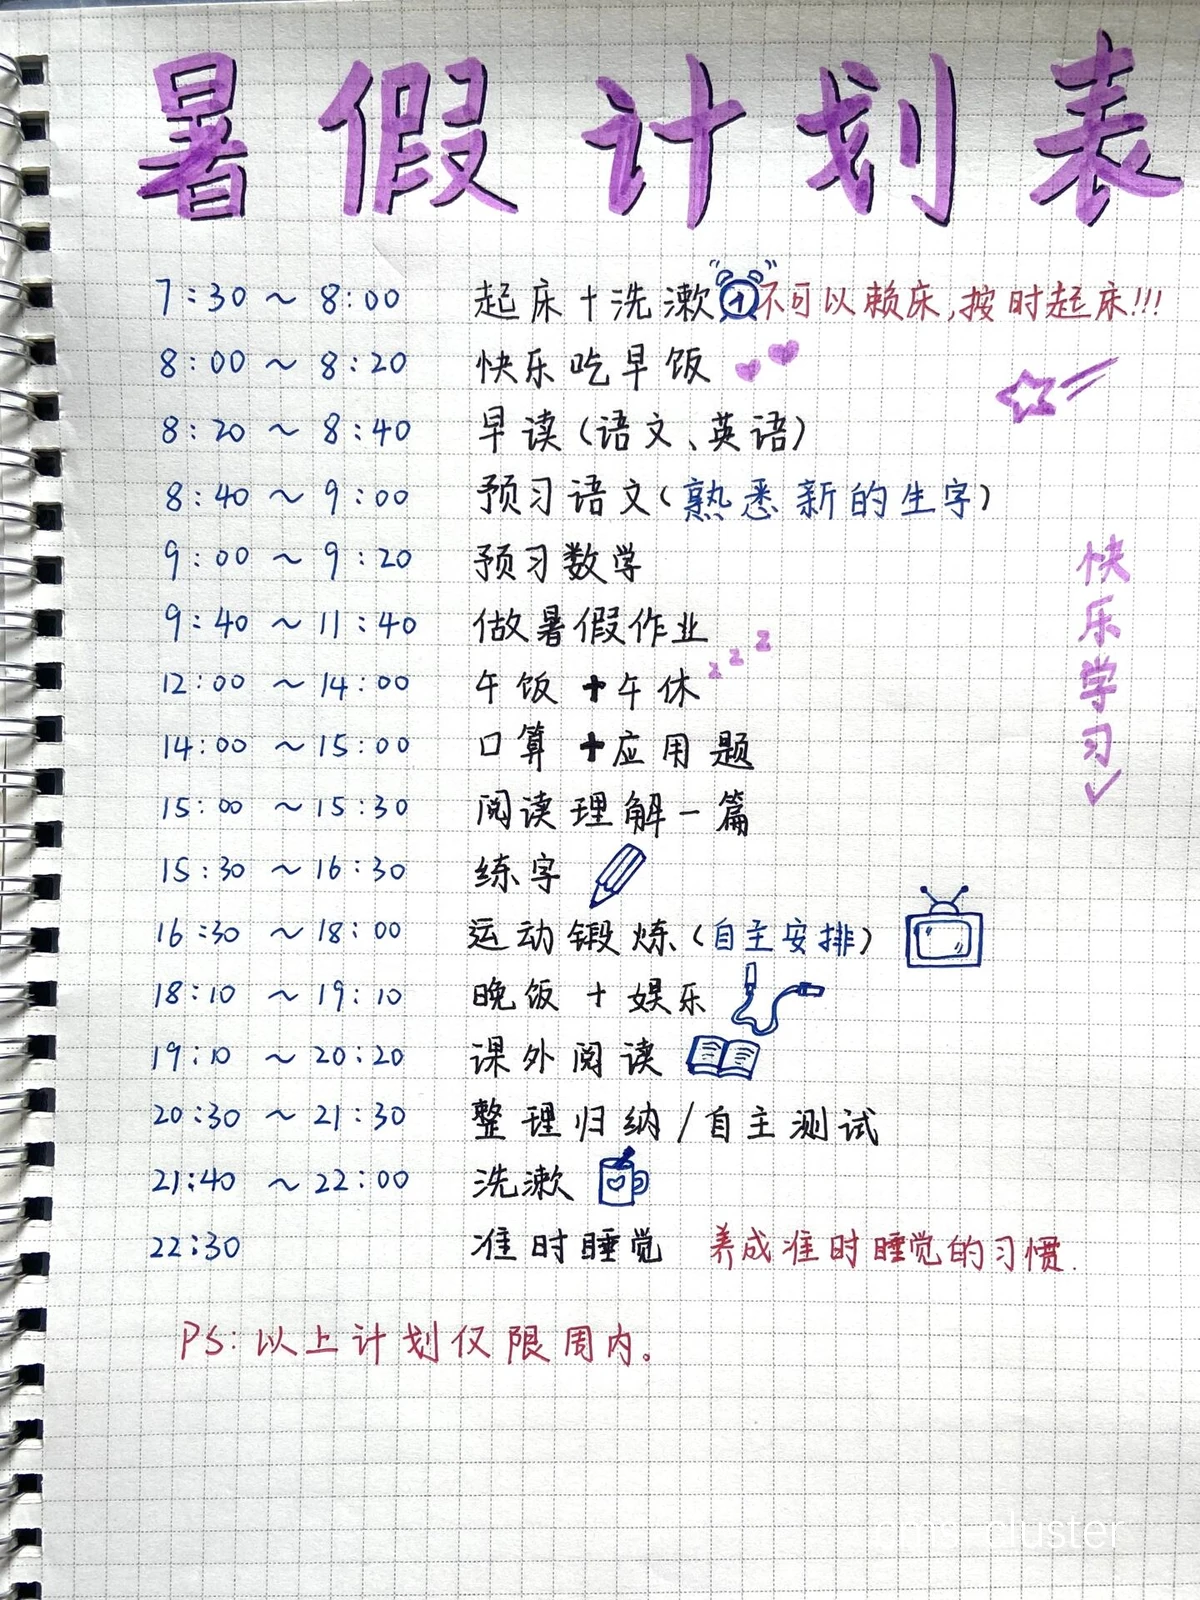 暑假计划表
7:30 ~ 8:00 起床+洗漱 不可以赖床,按时起床!!!
8:00 ~ 8:20 快乐吃早饭
8:20 ~ 8:40 早读(语文、英语)
8:40 ~ 9:00 预习语文(熟悉新的生字)
9:00 ~ 9:20 预习数学
9:40 ~ 11:40 做暑假作业
12:00 ~ 14:00 午饭+午休 zzz
14:00 ~ 15:00 口算+应用题
15:00 ~ 15:30 阅读理解一篇
15:30 ~ 16:30 练字
16:30 ~ 18:00 运动锻炼(自主安排)
18:10 ~ 19:10 晚饭+娱乐
19:10 ~ 20:20 课外阅读
20:30 ~ 21:30 整理归纳/自主测试
21:40 ~ 22:00 洗漱
22:30 准时睡觉 养成准时睡觉的习惯.
快乐学习✓
PS:以上计划仅限周内。
cluster